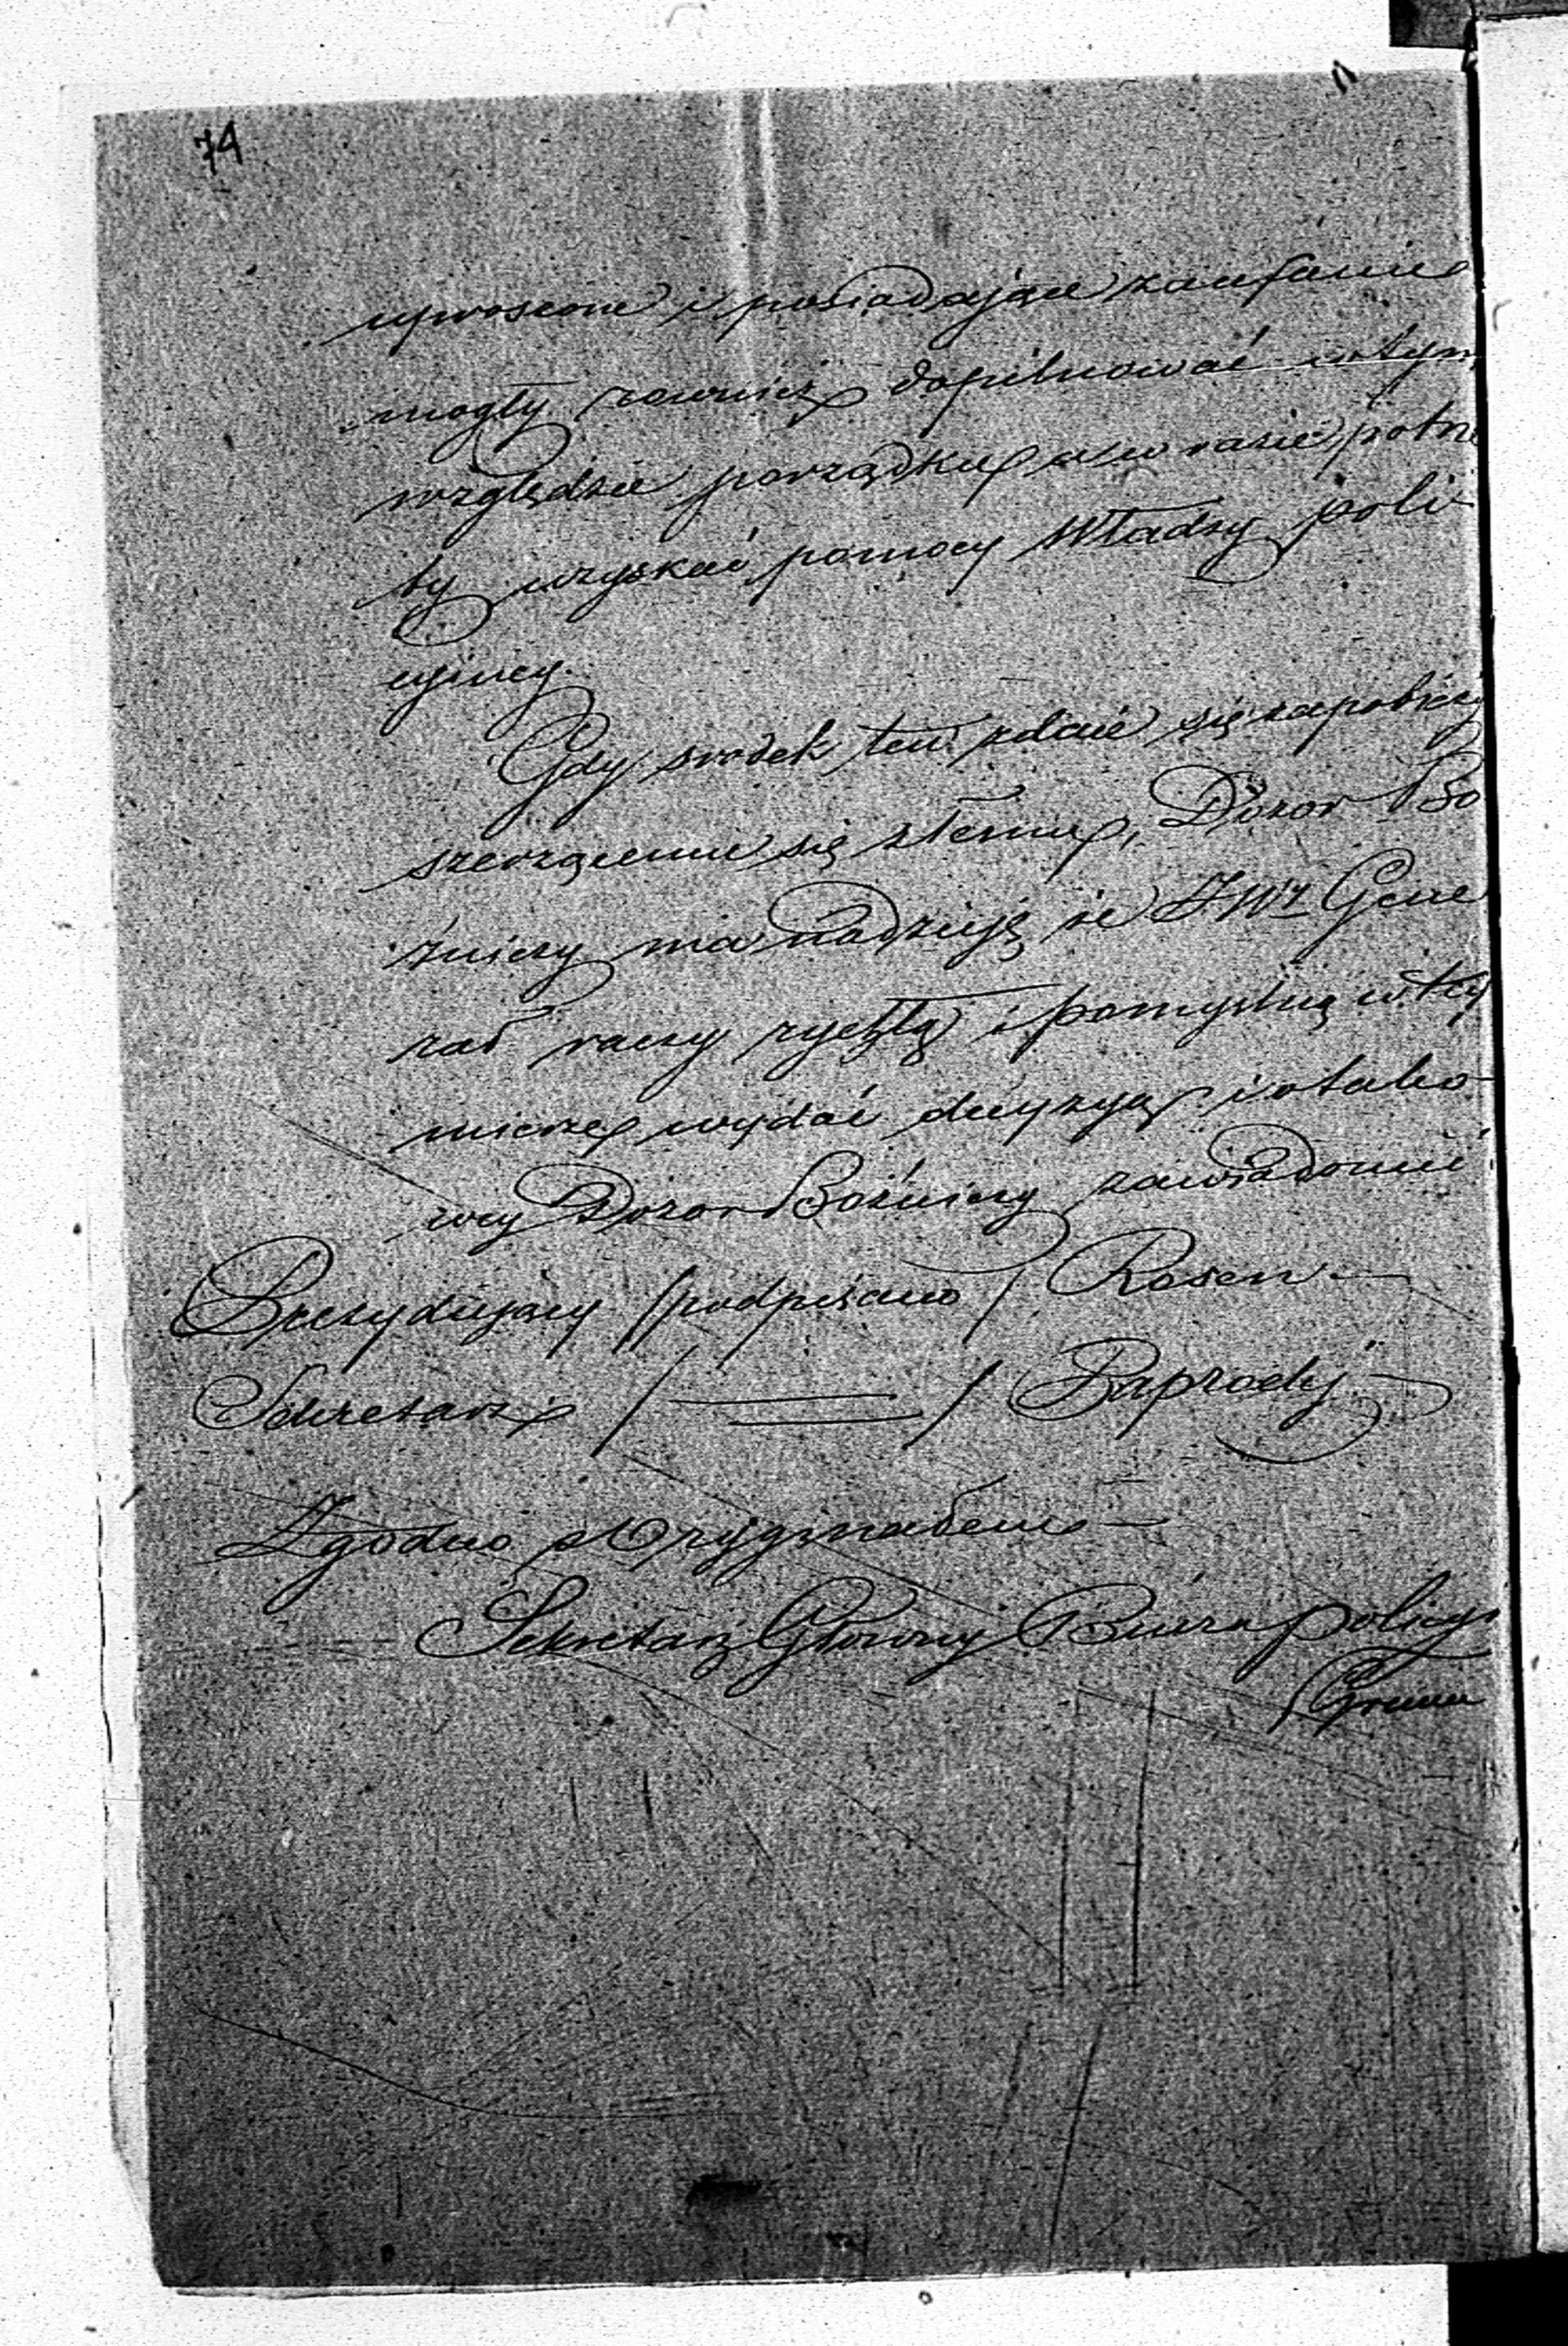 74
uproszone i posiadające zaufanie
mogły rownież dopilnować w tym
względzie porządku, a w razie potrze
by uzyskać pomocy Władzy poli
cyjney.
Gdy srodek ten zdaie się zapobiedz
szerzącemu się złemu, Dozor Bo
żniczy ma nadzieję że JWny Gene
rał raczy rychłą i pomyślną w tey
mierze wydać decyzyą i o tako
wey Dozor Bożniczy zawiadomić
Prezydujący /podpisano/ Rosen
Sekretarz / = / Paprocki
Zgodno z Oryginałem
Sekretarz Głowny Biura Policyi